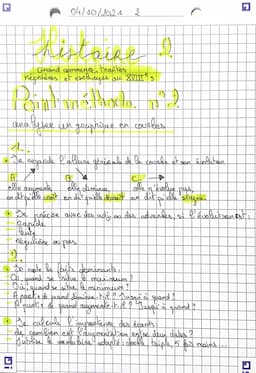 04/10/2021 2
histoire 2
Grand commerce, traites
négrières et esclavage au XVIIIe s
Point méthode n°2
analyser un graphique en courbes
1...
Je regarde l'allure générale de la courbe et son évolution
A. B. C.
elle augmente elle diminue elle n'évolue pas
on dit qu'elle croît on dit qu'elle décroît on dit qu'elle stagne
Je précise avec des adj ou des adverbes, si l'évolution est :
rapide
lente
régulière ou pas
2...
Je note les faits dominants :
Où, quand se situe le maximum ?
Où, quand se situe le minimum ?
A partir de quand diminue-t-il ? Jusqu'à quand ?
A partir de quand augmente-t-il ? Jusqu'à quand ?
Je calcule l'importance des écarts :
de combien est l'augmentation entre deux dates ?
J'utilise le vocabulaire adapté : double, triple, 5 fois moins...